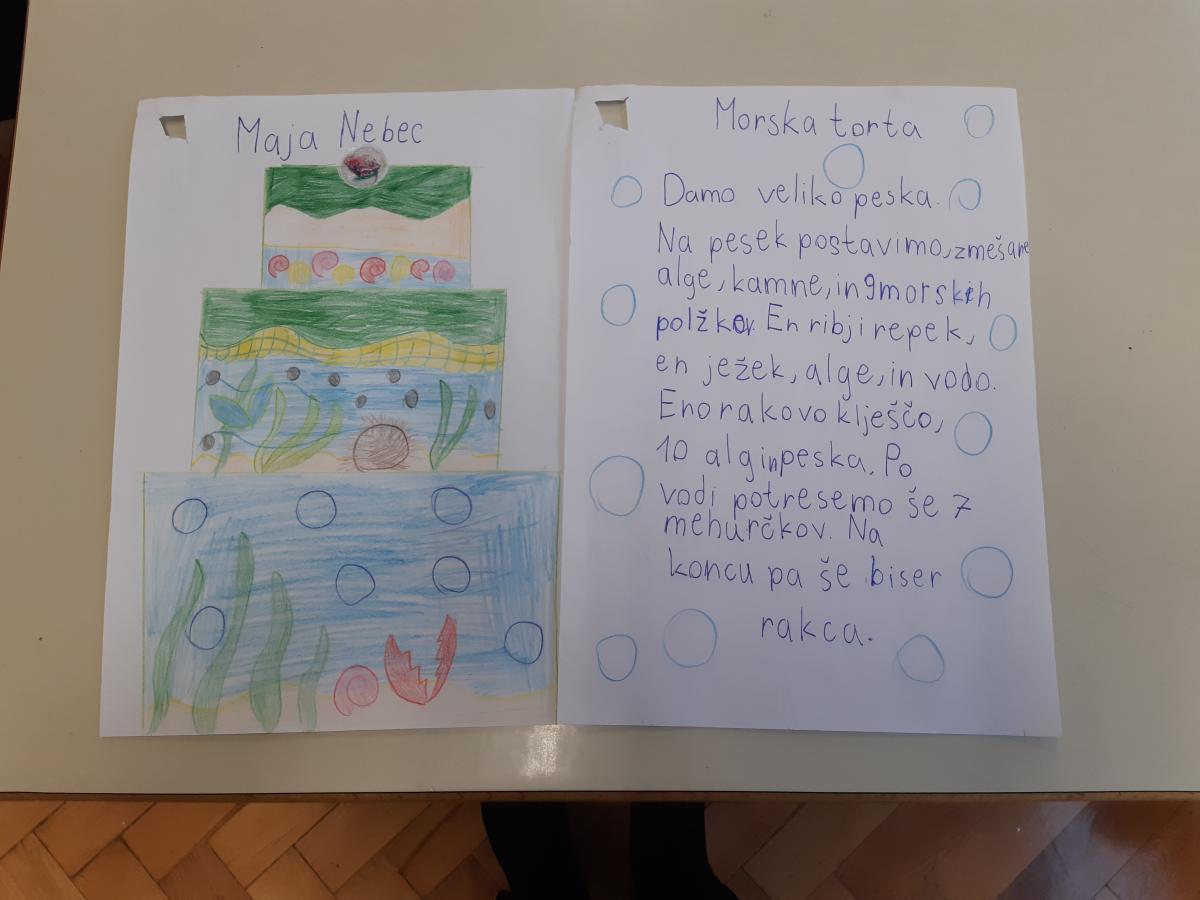 Maja Nebec
Morska torta
Damo veliko peska.
Na pesek postavimo, zmešane
alge, kamne, in 9 morskih
polžkov. En ribji repek,
en ježek, alge, in vodo.
Eno rakovo klješčo,
10 alg in peska. Po
vodi potresemo še 7
mehurčkov. Na
koncu pa še biser
rakca.